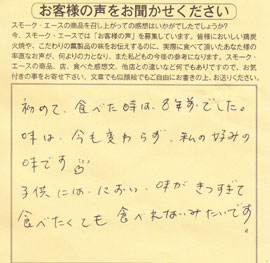 お客様の声をお聞かせください
スモーク・エースの商品を召し上がっての感想はいかがでしたでしょうか?
今、スモーク・エースでは「お客様の声」を募集しています。皆様においしい鶏炭
火焼や、こだわりの燻製品の味をお伝えするのに、実際に食べて頂いたあなた様の
率直なお声が、何よりの力となり、また私どもの今後の参考になります。スモーク・
エースの商品、店、食べた感想文、他店との違いなど何でもありですので、お気
付きの事をお寄せ下さい。文章でも似顔絵でもご自由にお書きの上、お送りください。
初めて、食べた時は、8年前でした。
味は、今も変わらず、私の好みの
味です
子供には、におい、味がきつすぎて
食べたくても食べれないみたいです。